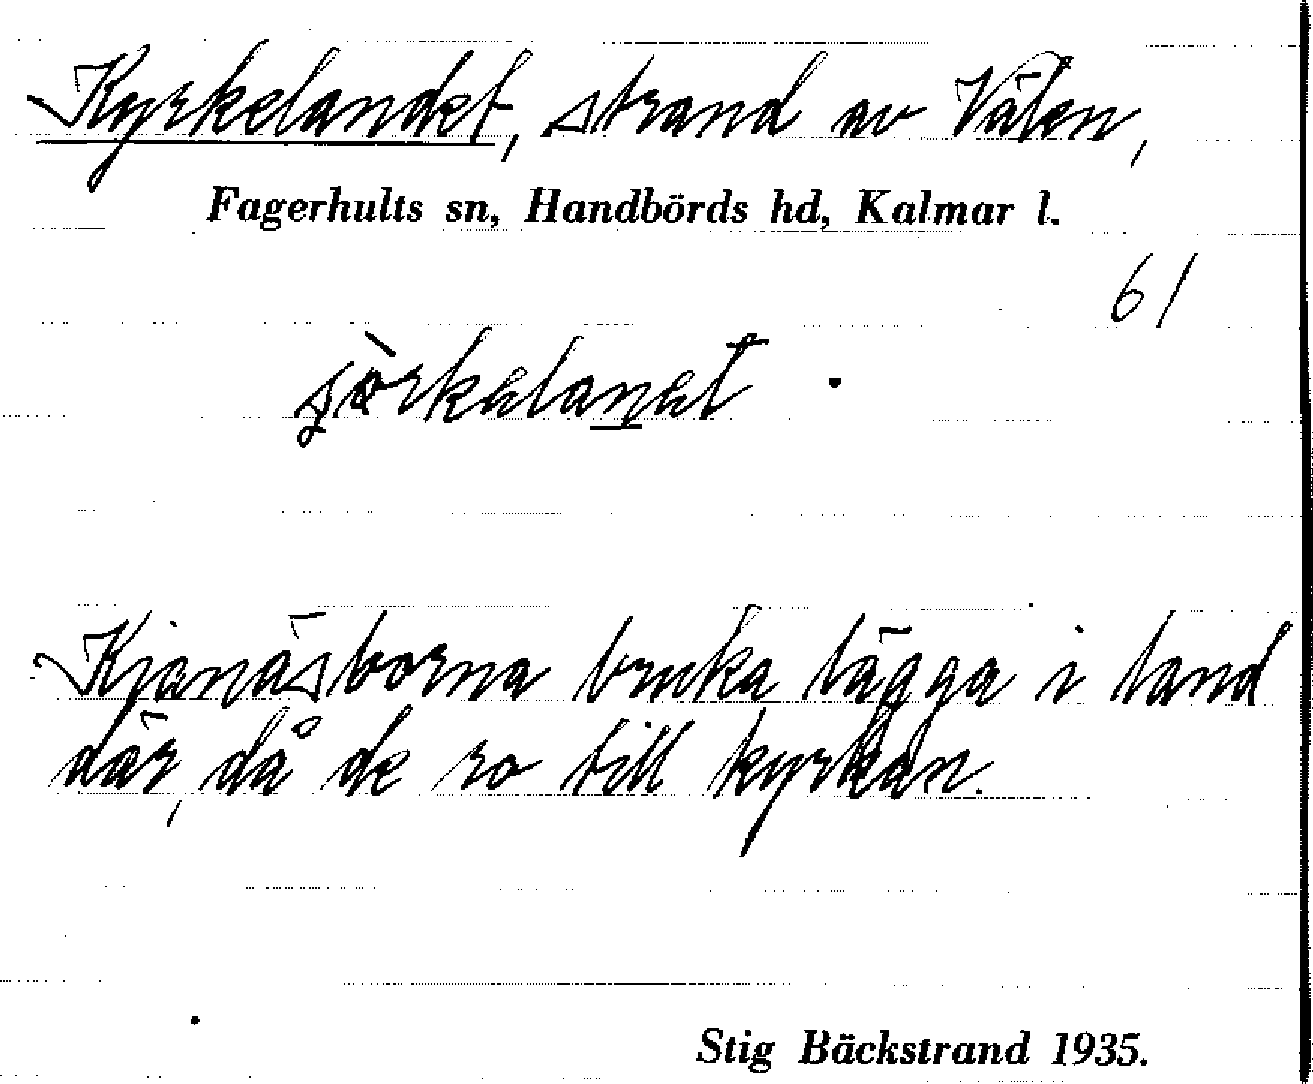 Kyrkelandet, strand av Välen,
Fagerhults sn, Handbörds hd, Kalmar l.
61
Kianäsborna bruka lägga i land
där, då de ro till kyrkan.
Stig Bäckstrand 1935.